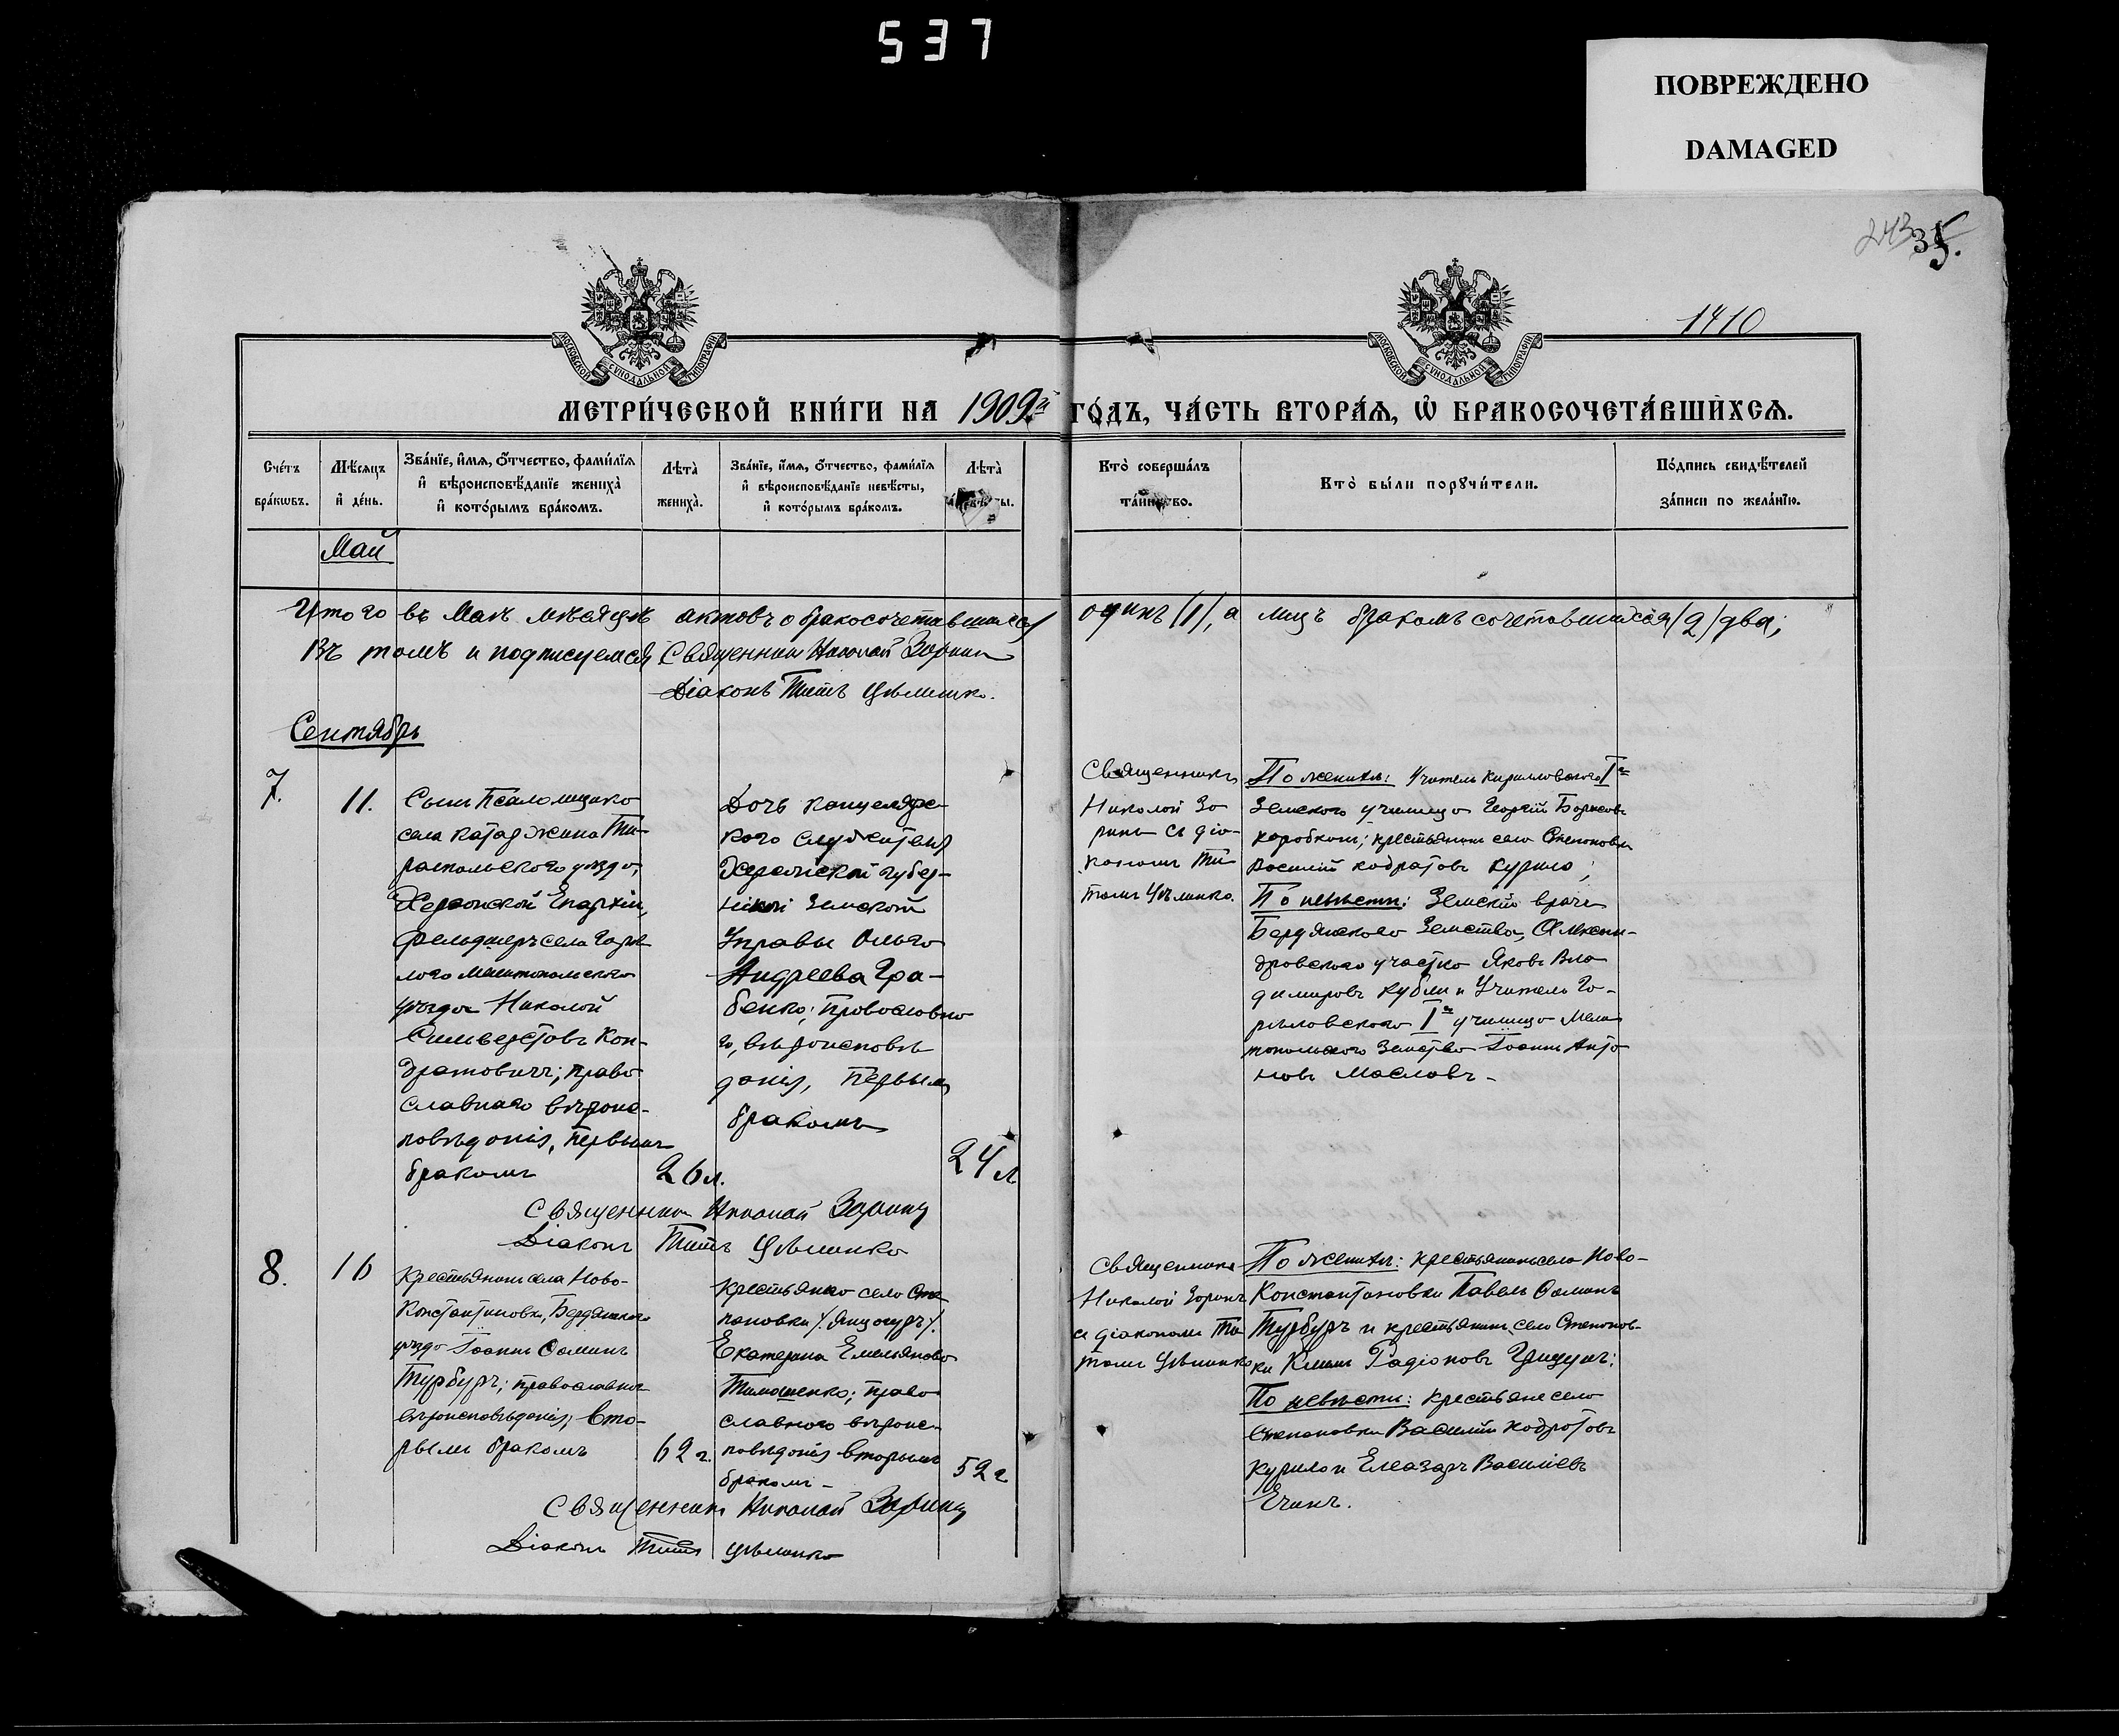 537
ПОВРЕЖДЕНО
DAMAGED
243 35.
1410
МЕТРИ́ЧЕСКОЙ КНИ́ГИ НА 1909й ГО́ДЪ, ЧА́СТЬ ВТОРА́Я, Ѡ БРАКОСОЧЕТА́ВШИХСЯ.
Сче́тъ бра́кѡвъ.
Мѣ́сяцъ и де́нь.
Зва́нїе, и́мя, ѻ́тчество, фами́лїя и вѣроисповѣ́данїе жениха̀ и кото́рымъ бра́комъ.
Лѣта̀ жениха̀.
Зва́нїе, и́мя, ѻ́тчество, фами́лїя и вѣроисповѣ́данїе невѣ́сты, и кото́рымъ бра́комъ.
Лѣта̀
Кто̀ соверша́лъ та́инство.
Кто̀ бы́ли порꙋчи́тели.
По́дпись свидѣ́телей за́писи по жела́нїю.
Май
Итого въ Маѣ мѣсяцѣ актовъ о бракосочетавшихся одинъ (1), а лицъ бракомъ сочетавшихся (2) два;
Въ томъ и подписуемся Священникъ Николай Зоринъ
Діаконъ Титъ Цѣлинко.
Сентябрь
7.
11.
Сынъ Псаломщика
села Катаржина Ти-
распольскаго уѣзда,
Херсонской Епархіи,
фельдшеръ села Горѣ-
лаго Мелитопольскаго
уѣзда Николай
Сильвестровъ Кон-
дратовичъ; право-
славнаго вѣроис-
повѣданія, первымъ
бракомъ
26 л.
Дочь канцеляр-
каго служителя
Херсонской губер-
нской Земской
Управы Ольга
Андреева Гра-
бенко; православна-
го, вѣроисповѣ-
данія, первымъ
бракомъ
24 л
Священникъ
Николай Зо-
ринъ съ діа-
кономъ Ти-
томъ Цѣлинко.
По женихѣ: Учитель Кирилловскаго Iго
Земскаго училища Георгій Борисовъ
Коробкинъ; крестьянинъ села Степановки
Василій Кодратовъ Курило;
По невѣсти: Земскій врачъ
Бердянскаго Земства, Алексан-
дровскаго участка Яковъ Вла-
димировъ Кубли и Учитель Го-
рѣловскаго Iго училища Мели-
топольскаго Земства Іоаннъ Анто-
новъ Масловъ -
Священникъ Николай Зоринъ
Діаконъ Титъ Цѣлинко
8.
16
Крестьянинъ села Ново-
Константиновки, Бердянскаго
уѣзда Іоаннъ Ѳоминъ
Турбуръ; православнаго
вѣроисповѣданія; вто-
рымъ бракомъ
62 г.
Крестьянка села Сте-
пановки
Екатерина Емельянова
Тимошенко; право-
славнаго вѣроис-
повѣданія вторымъ
бракомъ -
52 г
Священникъ
Николай Зоринъ
съ діакономъ Ти-
томъ Цѣлинко
По женихѣ: крестьянинъ села Ново-
Константиновки Павелъ Ѳоминъ
Турбуръ и крестьянинъ села Степанов-
ки Климъ Радіоновъ Грицунъ;
По невѣсти: крестьяне села
Степановки Василій Кодротовъ
Курило и Елеазаръ Василіевъ
Священникъ Николай Зоринъ
Діаконъ Титъ Цѣлинко